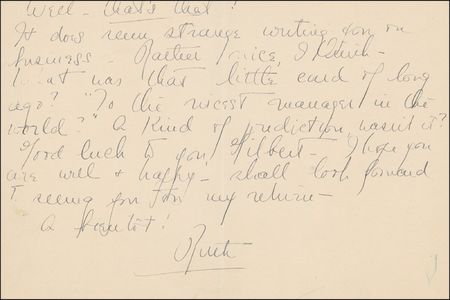 Well - that's that!
It does seem strange writing you on
business - Rather nice, I think -
What was that little card of long
ago? "To the nicest manager in the
world?" A kind of prediction, wasn't it?
Good luck to you, Gilbert - I hope you
are well & happy - shall look forward
to seeing you on my return -
A bientôt!
Ruth